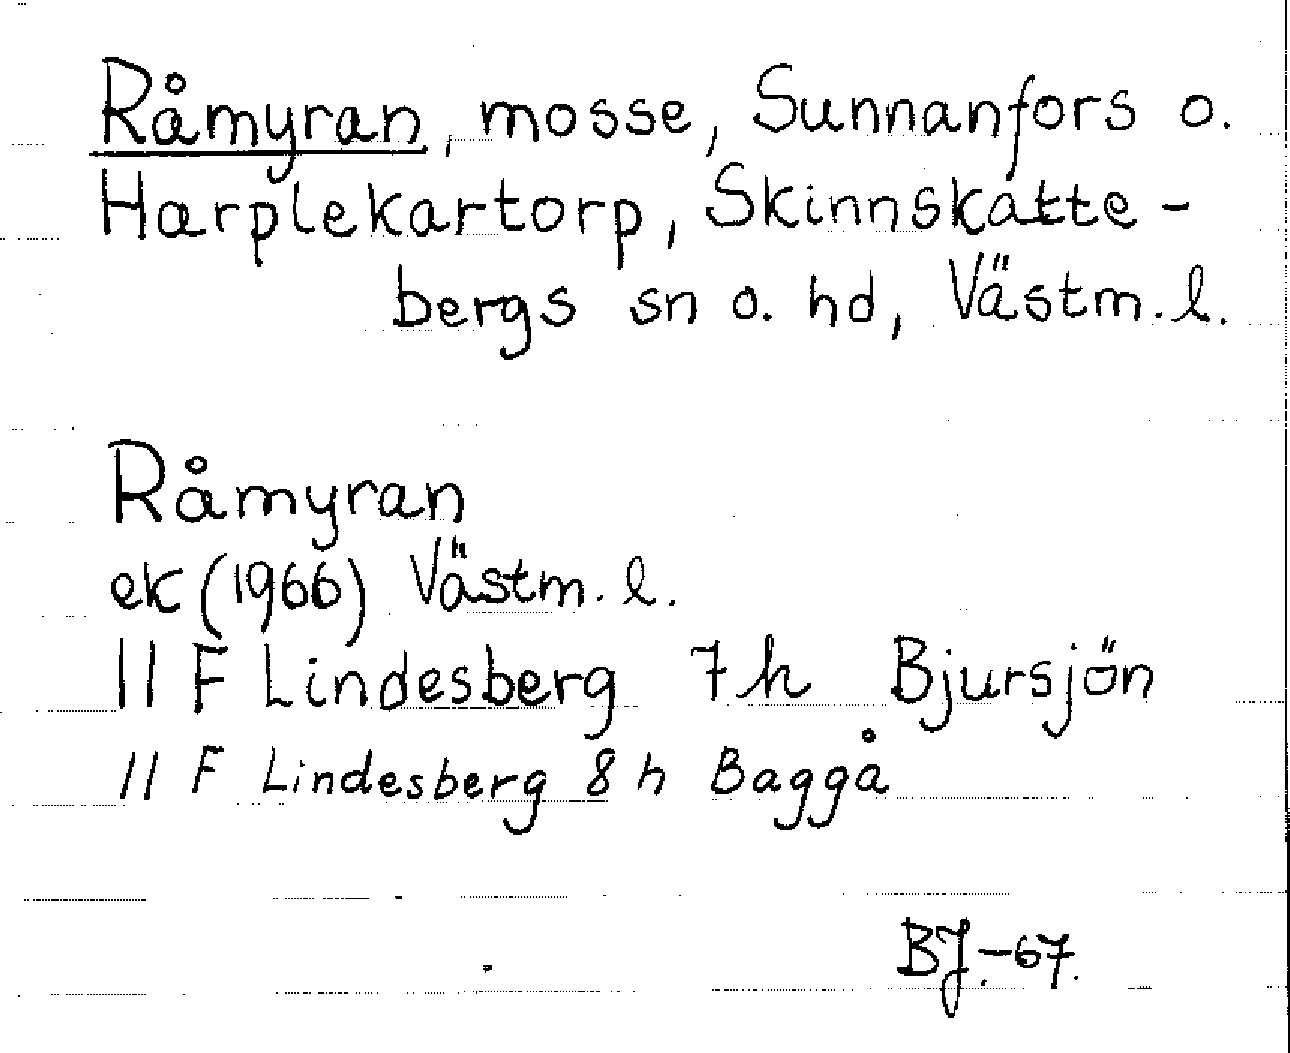 Råmyran, mosse, Sunnanfors o.
Harplekartorp, Skinnskatte-
bergs sn o. hd, Västm. l.
Råmyran
ek (1966) Västm. l.
11 F Lindesberg 7h Bjursjön
11 F Lindesberg 8h Baggå
BJ.-67.